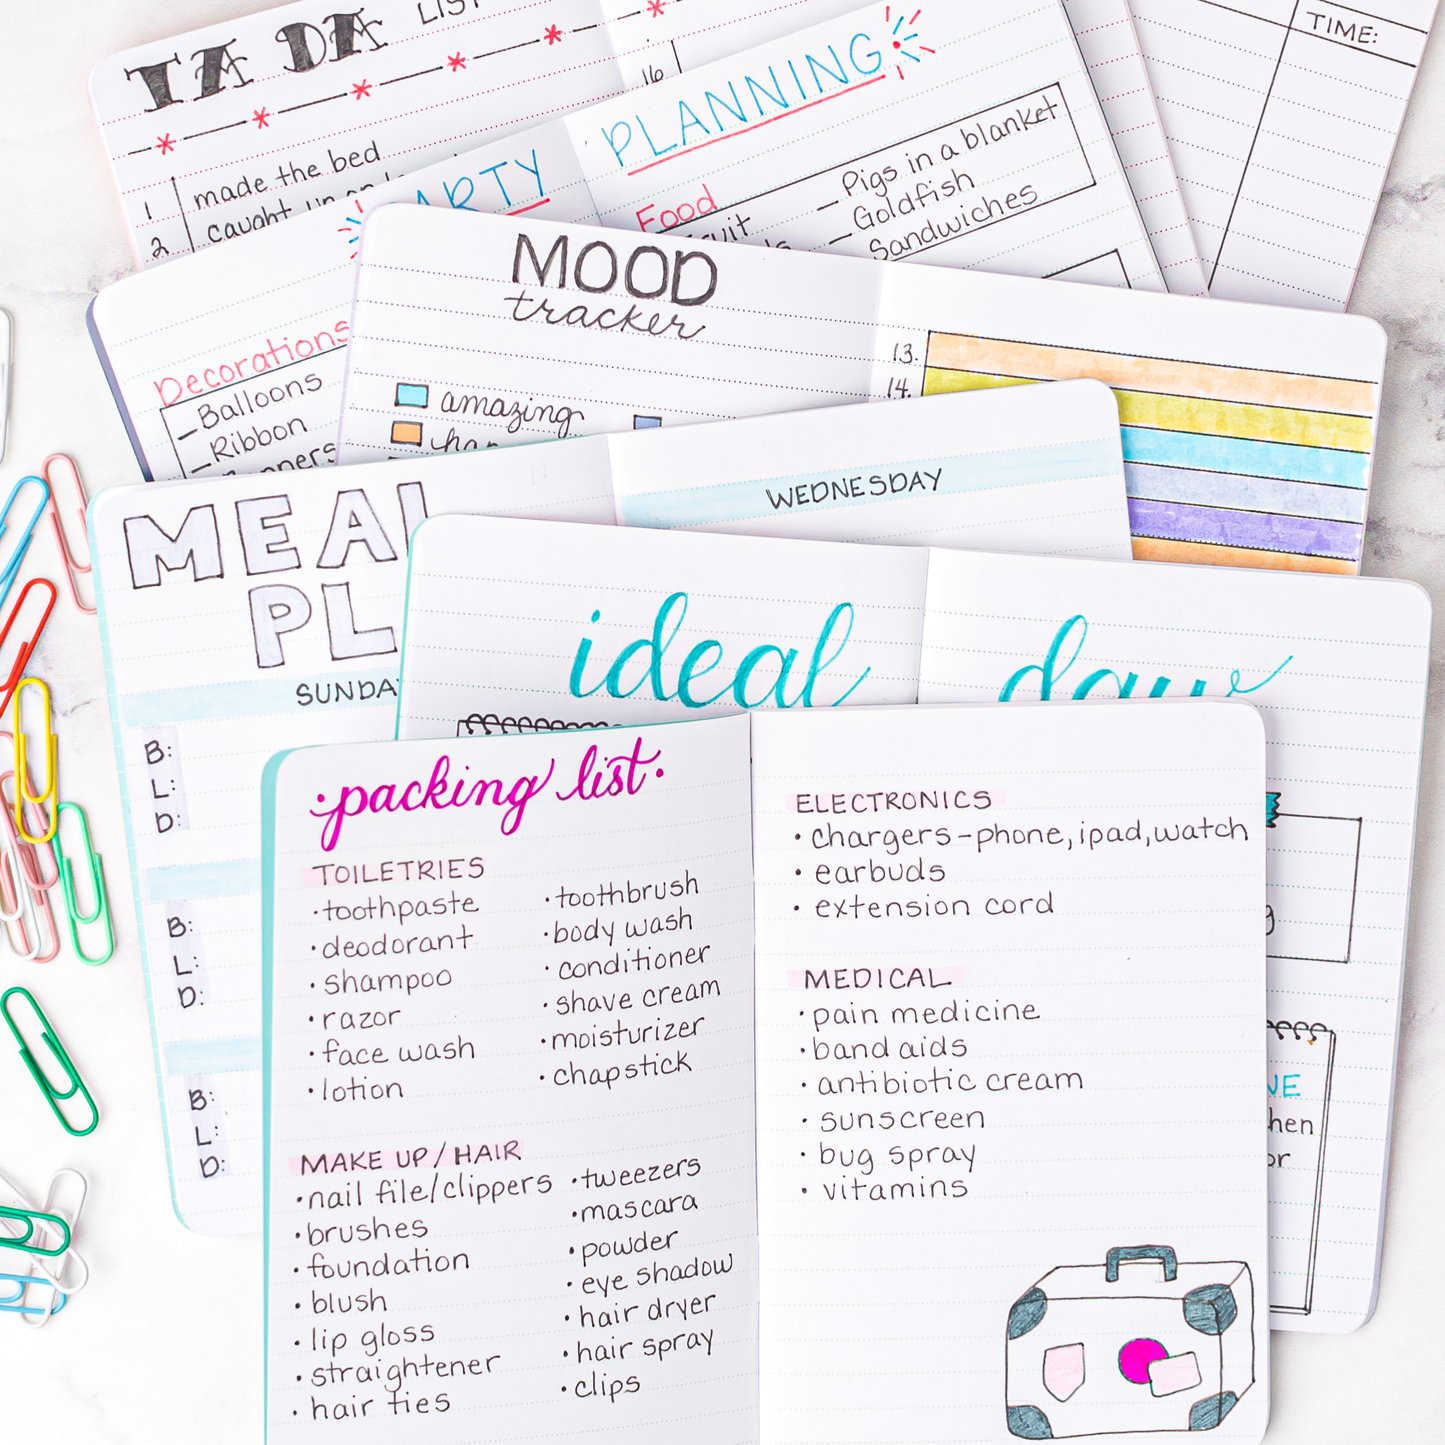 TA DA LIST
1 made the bed
2 caught up on
16
TIME:
PARTY PLANNING
Food
- Pigs in a blanket
- Goldfish
Sandwiches
Decorations
- Balloons
- Ribbon
MOOD
tracker
amazing
13.
14.
MEAL
PL
WEDNESDAY
SUNDAY
B:
L:
D:
B:
L:
D:
B:
L:
D:
ideal day
·packing list·
TOILETRIES
· toothpaste
· deodorant
· shampoo
· razor
· face wash
· lotion
· toothbrush
· body wash
· conditioner
· shave cream
· moisturizer
· chapstick
MAKE UP / HAIR
· nail file/clippers
· brushes
· foundation
· blush
· lip gloss
· straightener
· hair ties
· tweezers
· mascara
· powder
· eye shadow
· hair dryer
· hair spray
· clips
ELECTRONICS
· chargers - phone, ipad, watch
· earbuds
· extension cord
MEDICAL
· pain medicine
· band aids
· antibiotic cream
· sunscreen
· bug spray
· vitamins